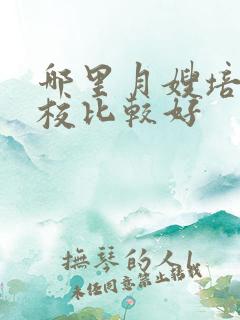 哪里月嫂培
校比较好
撫琴的人l
未经同意禁止转载